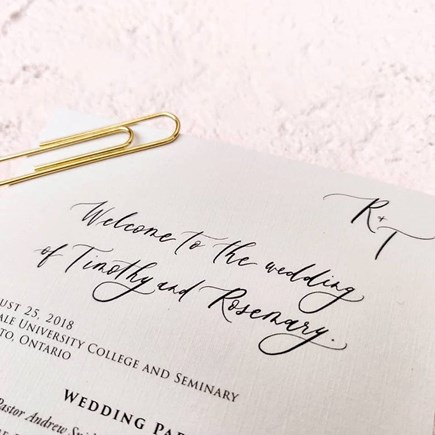 R+T
Welcome to the wedding
of Timothy and Rosemary.
25, 2018
University College and Seminary
Ontario
Wedding
Pastor Andrew